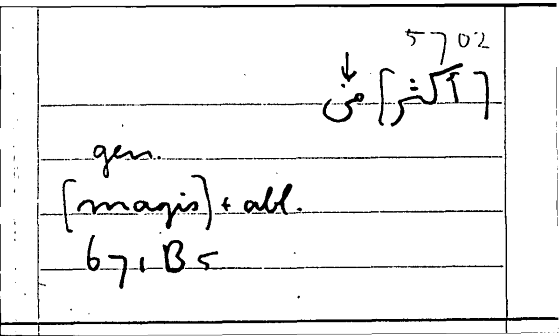 5702
↓
[أكثر] من
gen.
[magis] + abl.
671 B 5